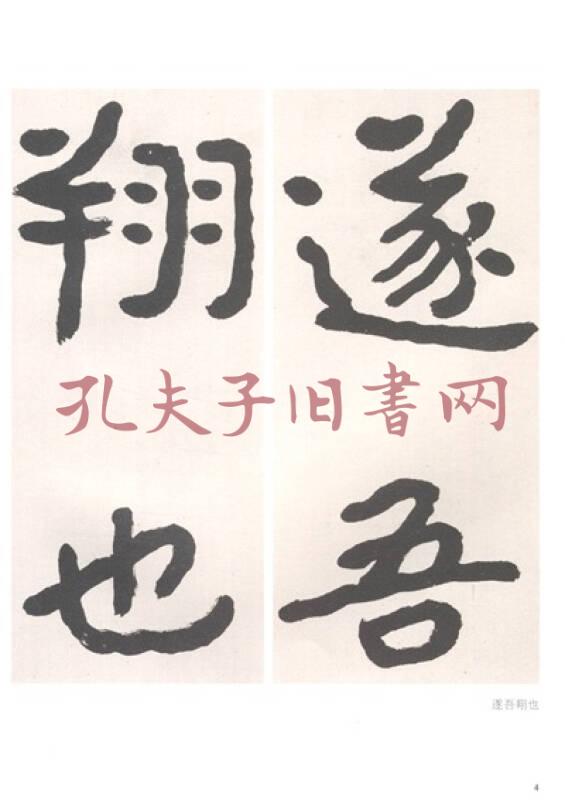 遂吾
翔也
孔夫子旧書网
遂吾翔也
4